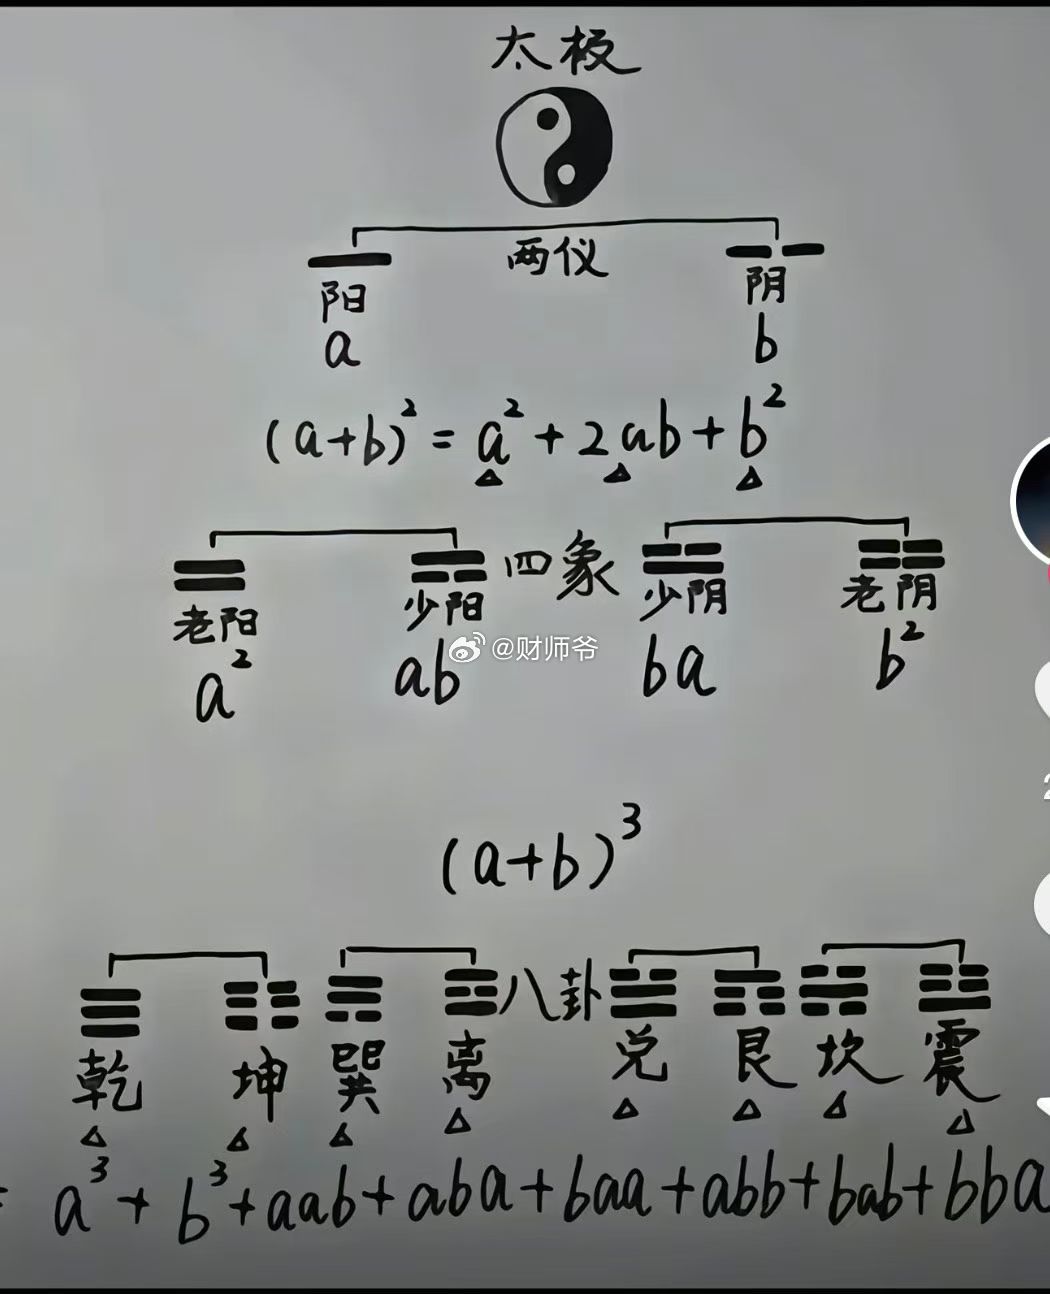 太极
两仪
阳 阴
a b
(a+b)² = a² + 2ab + b²
四象
老阳 少阳 少阴 老阴
@财师爷
a² ab ba b²
(a+b)³
八卦
乾 坤 巽 离 兑 艮 坎 震
= a³ + b³ + aab + aba + baa + abb + bab + bba